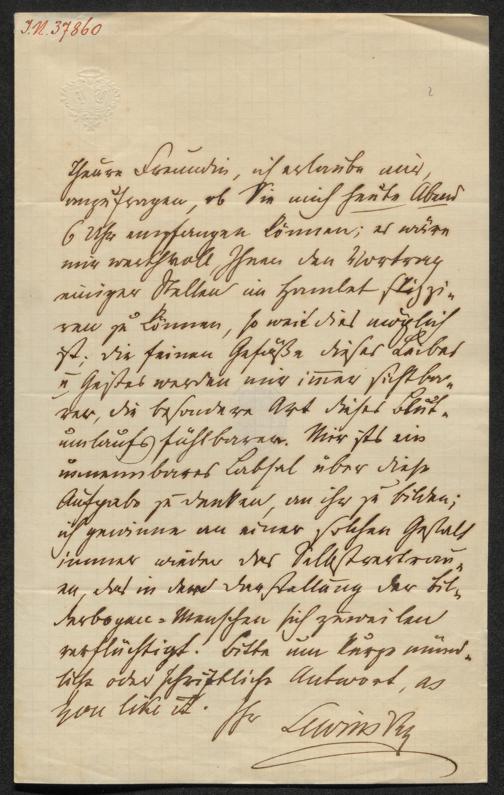 J.N. 37860
2
Theure Freundin, ich erlaube mir,
anzufragen, ob Sie mich heute Abend
6 Uhr empfangen können; es wäre
mir werthvoll Ihnen den Vortrag
einiger Stellen im Hamlet skizzi-
ren zu können, so weit dies möglich
ist. Die feinen Gefäße dieses Leibes
u Geistes werden mir immer sichtba-
rer, die besondere Art dieses Blut-
umlaufs fühlbarer. Mir ists ein
unnennbares Labsal über diese
Aufgabe zu denken, an ihr zu bilden;
ich gewinne an einer solchen Gestalt
immer wieder das Selbstvertrau-
en, das in der Darstellung der Bil-
derbogen-Menschen sich zuweilen
verflüchtigt. Bitte um kurze münd-
liche oder schriftliche Antwort, as
you like it. Ihr
Lewinsky